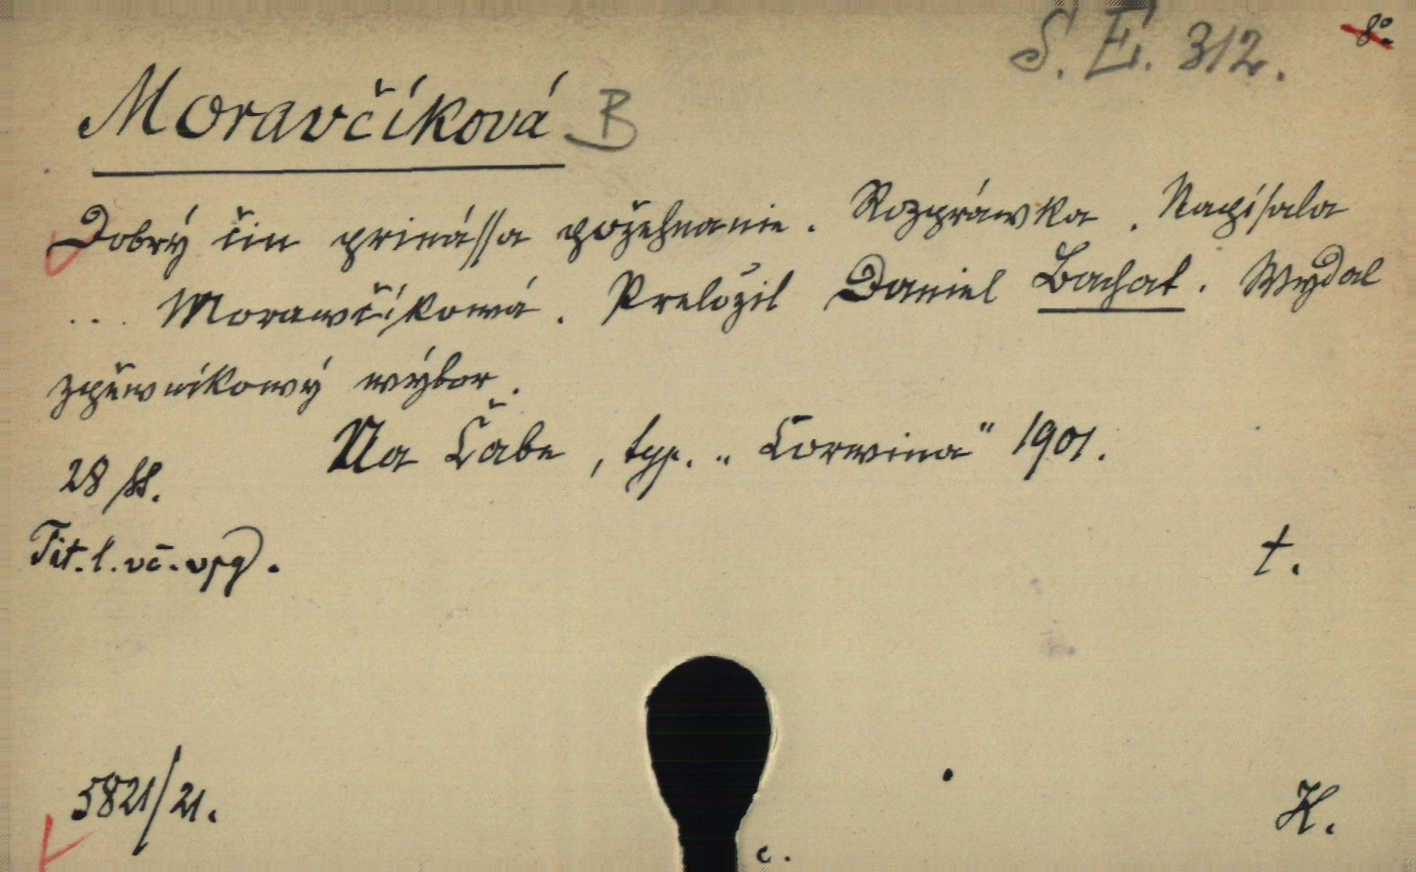 S. E. 312. 8°
Moravčíková B
Dobrý čin prinássa požehnanie. Rozpráwka. Napísala
... Morawčíkowá. Preložil Daniel Bachat. Wydal
zpěwníkowý wýbor.
Na Čabe, typ. „Corwina" 1901.
28 ss.
Tit. l. vč. vpg).
t.
5821/21.
K.
c.